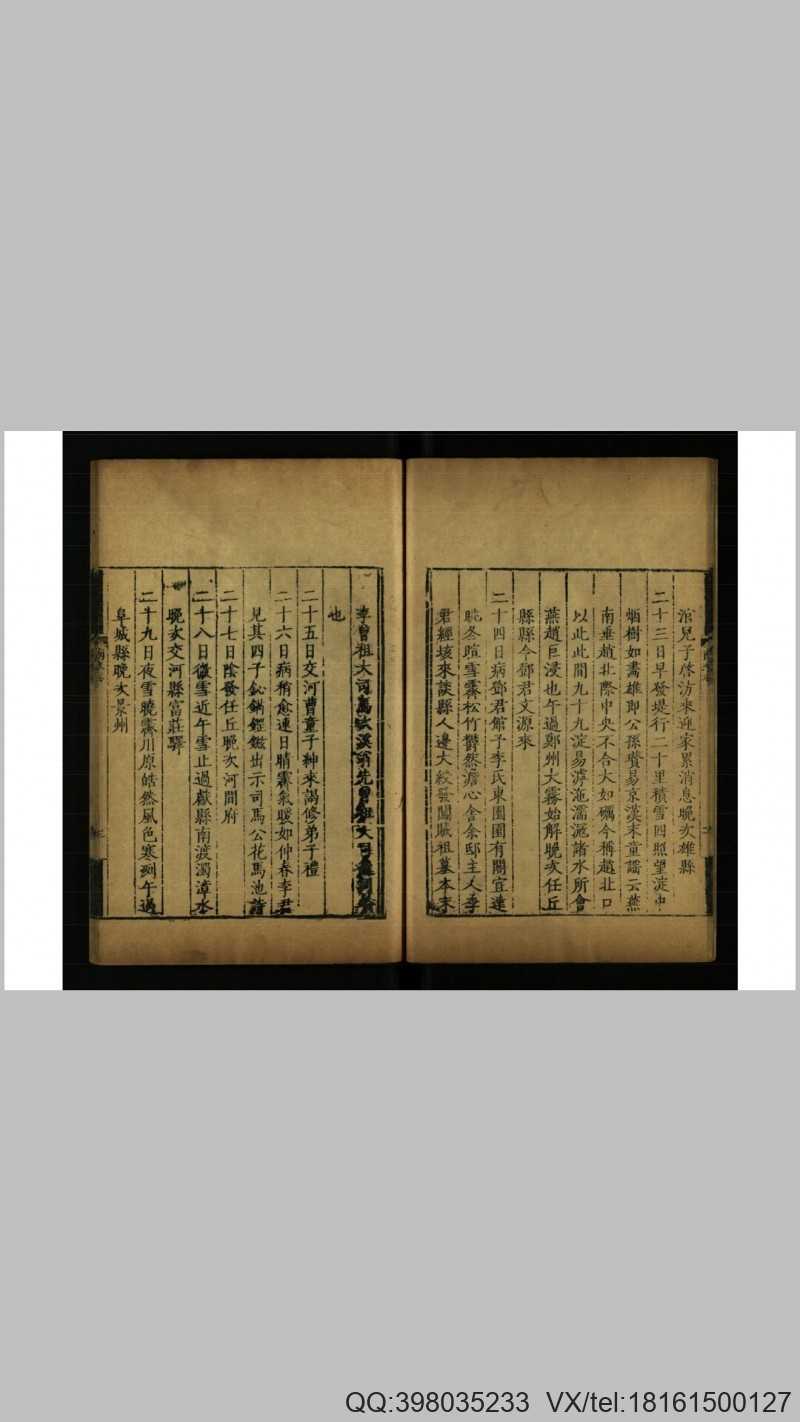 涫兒子啓涝來迎家累消息晚次雄縣
二十三日早發堤行二十里積雪四照望淀中
烟樹如畫雄即公孫瓚易京漢末童謡云燕
南垂趙北際中央不合大如礪今稱趙北口
以此此間九十九淀易滹沲濡濾諸水所會
燕趙巨浸也午過鄚州大霧始解晚次任丘
縣縣令鄧君文源來
二十四日病鄧君館予李氏東園園有閣宜遠
眺冬暄雪霽松竹鬱然澹心舍余邸主人李
君經垓來談縣人邊大綬發闖賊祖墓本末
李曾祖大司馬次溪翁先曾祖大司
也
二十五日交河曹童子紳來謁修弟子禮
二十六日病稍愈連日晴霽氣暖如仲春李君
見其四子鉍鍋鎧鎡出示司馬公花馬池諸
二十七日陰發任丘晚次河間府
二十八日微雪近午雪止過獻縣南渡濁漳水
晚次交河縣富莊驛
二十九日夜雪曉霽川原皓然風色寒冽午過
阜城縣晚次景州
QQ:398035233 VX/tel:18161500127